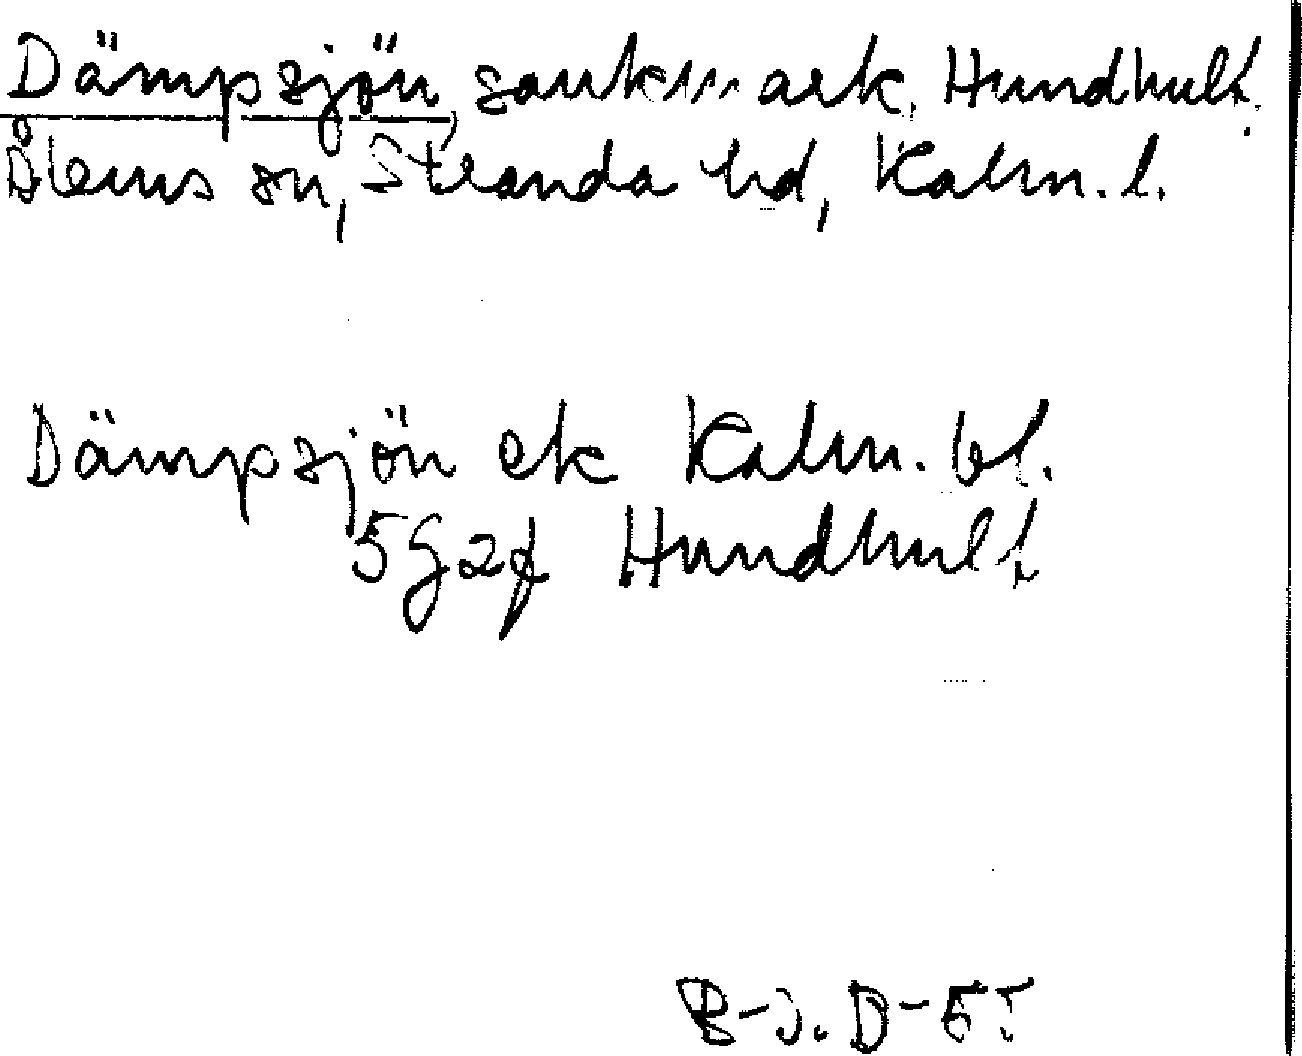 Dämpsjön, sankmark. Hundhult.
Ålems sn, Stranda hd, Kalm. l.
Dämpsjön ek Kalm. bl.
5G2f Hundhult
B-J. D-55